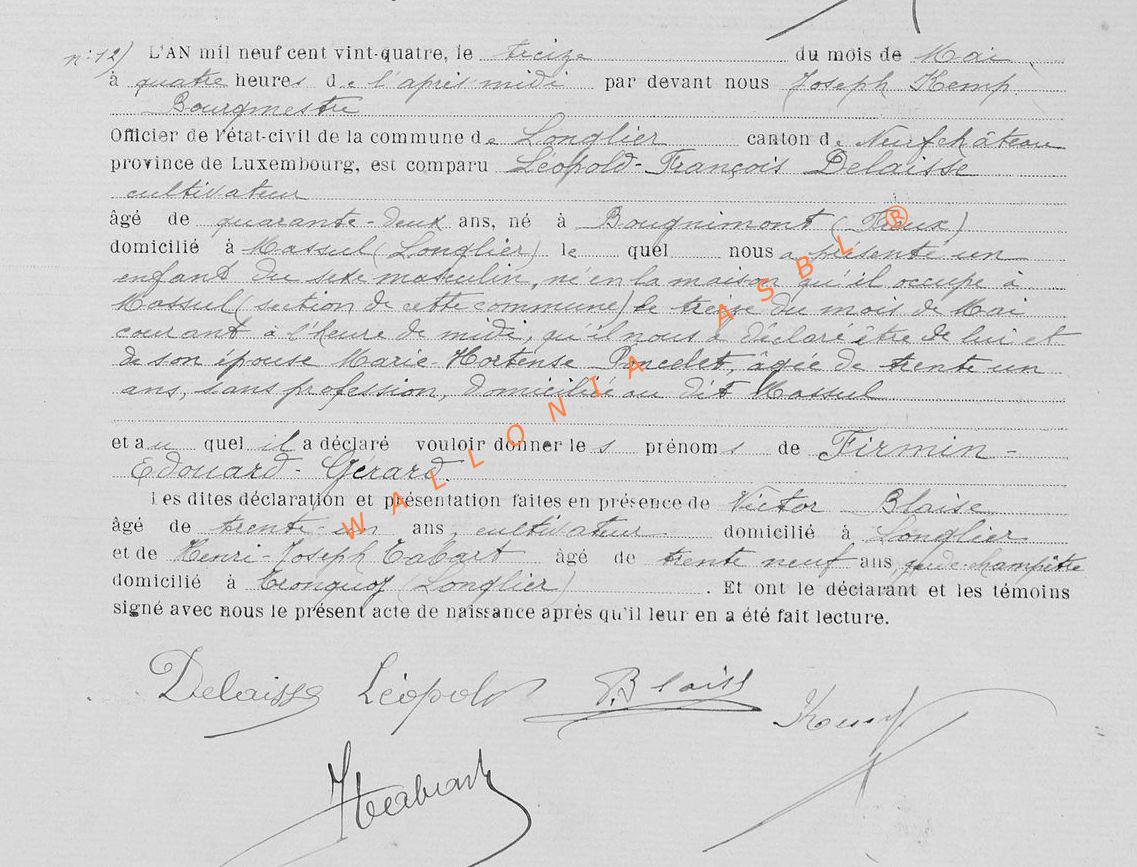 n° 12) L'AN mil neuf cent vint-quatre, le treize du mois de Mai
à quatre heures de l'après midi par devant nous Joseph Kemp
Bourgmestre
Officier de l'état-civil de la commune de Longlier canton de Neufchâteau
province de Luxembourg, est comparu Léopold-François Delaisse
cultivateur
âgé de quarante-deux ans, né à Bougnimont (
domicilié à Massul (Longlier) le quel nous a présenté un
enfant du sexe masculin, né en la maison qu'il occupe à
Massul (section de cette commune) le treize du mois de Mai
courant à l'heure de midi, qu'il nous a déclaré être de lui et
de son épouse Marie-Hortense Poncelet, âgée de trente un
ans, sans profession, domiciliée au dit Massul
et au quel il a déclaré vouloir donner les prénoms de Firmin-
Edouard-Gérard.
Les dites déclaration et présentation faites en présence de Victor Blaise
âgé de trente-un ans, cultivateur domicilié à Longlier
et de Henri-Joseph Tabart âgé de trente neuf ans, garde-champêtre
domicilié à Tronquoy (Longlier). Et ont le déclarant et les témoins
signé avec nous le présent acte de naissance après qu'il leur en a été fait lecture.
Delaisse Léopold Blaise Kemp
WALLONIA ASBL ®